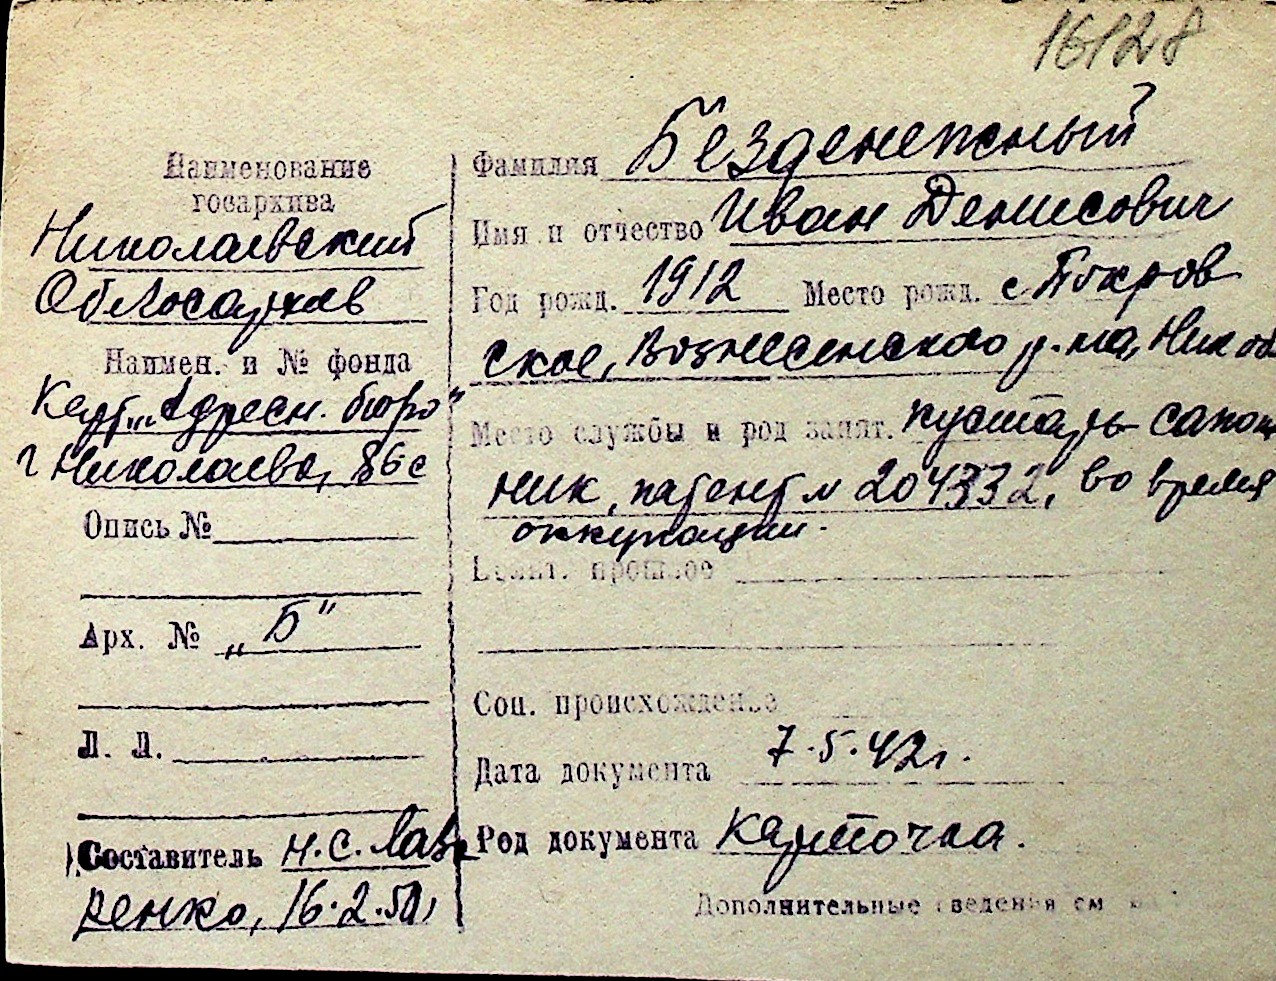 16128
Наименование
госархива
Николаевский
Облгосархив
Наимен. и № фонда
Карт. „Адресн. бюро"
г Николаева, 86с
Опись №
Арх. № „Б"
Л. Л.
Составитель Н.С. Лав
ренко, 16.2.50г
Фамилия Безденежный
Имя и отчество Иван Денисович
Год рожд. 1912 Место рожд. с Покров
ское, Вознесенского р-на, Ник об
Место службы и род занят. кустарь сапож
ник, патент № 204332, во время
оккупации.
Полит. прошлое
Соц. происхожденье
Дата документа 7.5.42г.
Род документа карточка.
Дополнительные сведенья см